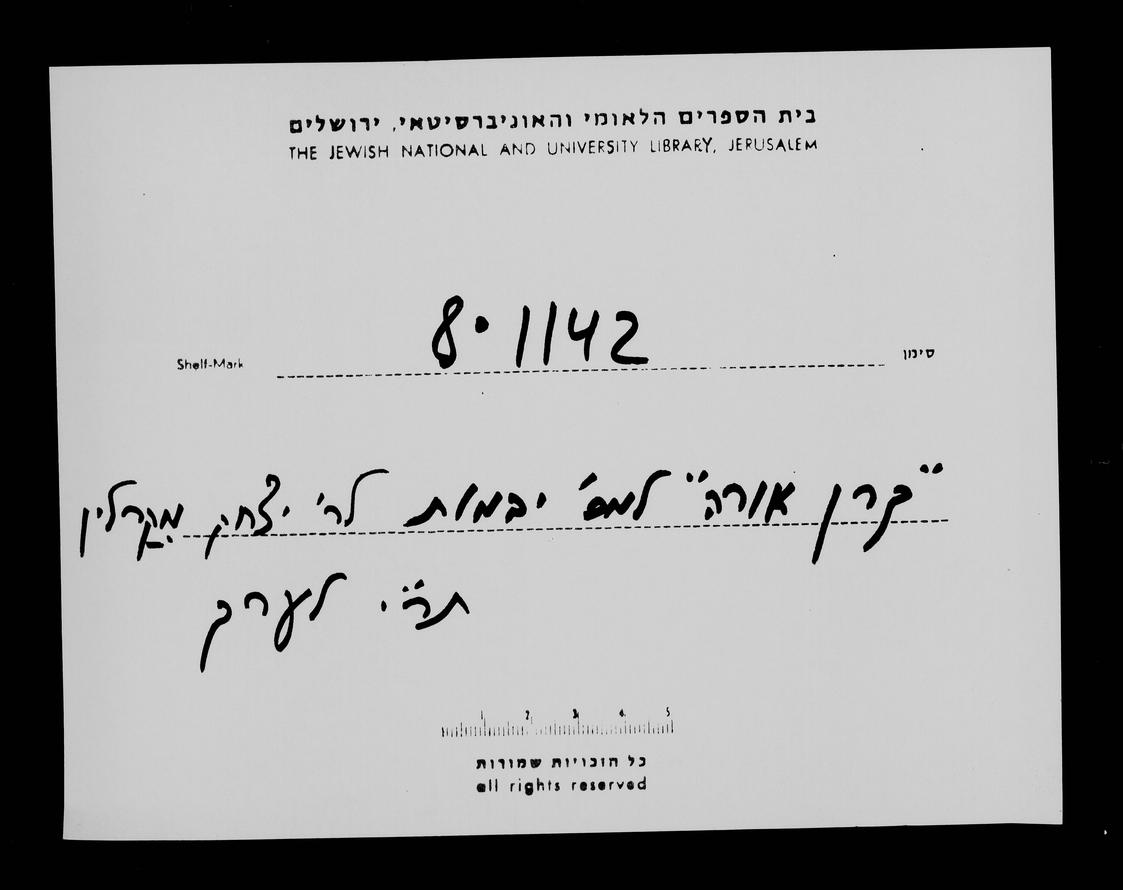 בית הספרים הלאומי והאוניברסיטאי, ירושלים
THE JEWISH NATIONAL AND UNIVERSITY LIBRARY, JERUSALEM
Shelf-Mark 8° 1142 סימן
"קרן אורה" למס' יבמות לר' יצחק מקרלין
תר"י לערך
1 2 3 4 5
כל הזכויות שמורות
all rights reserved